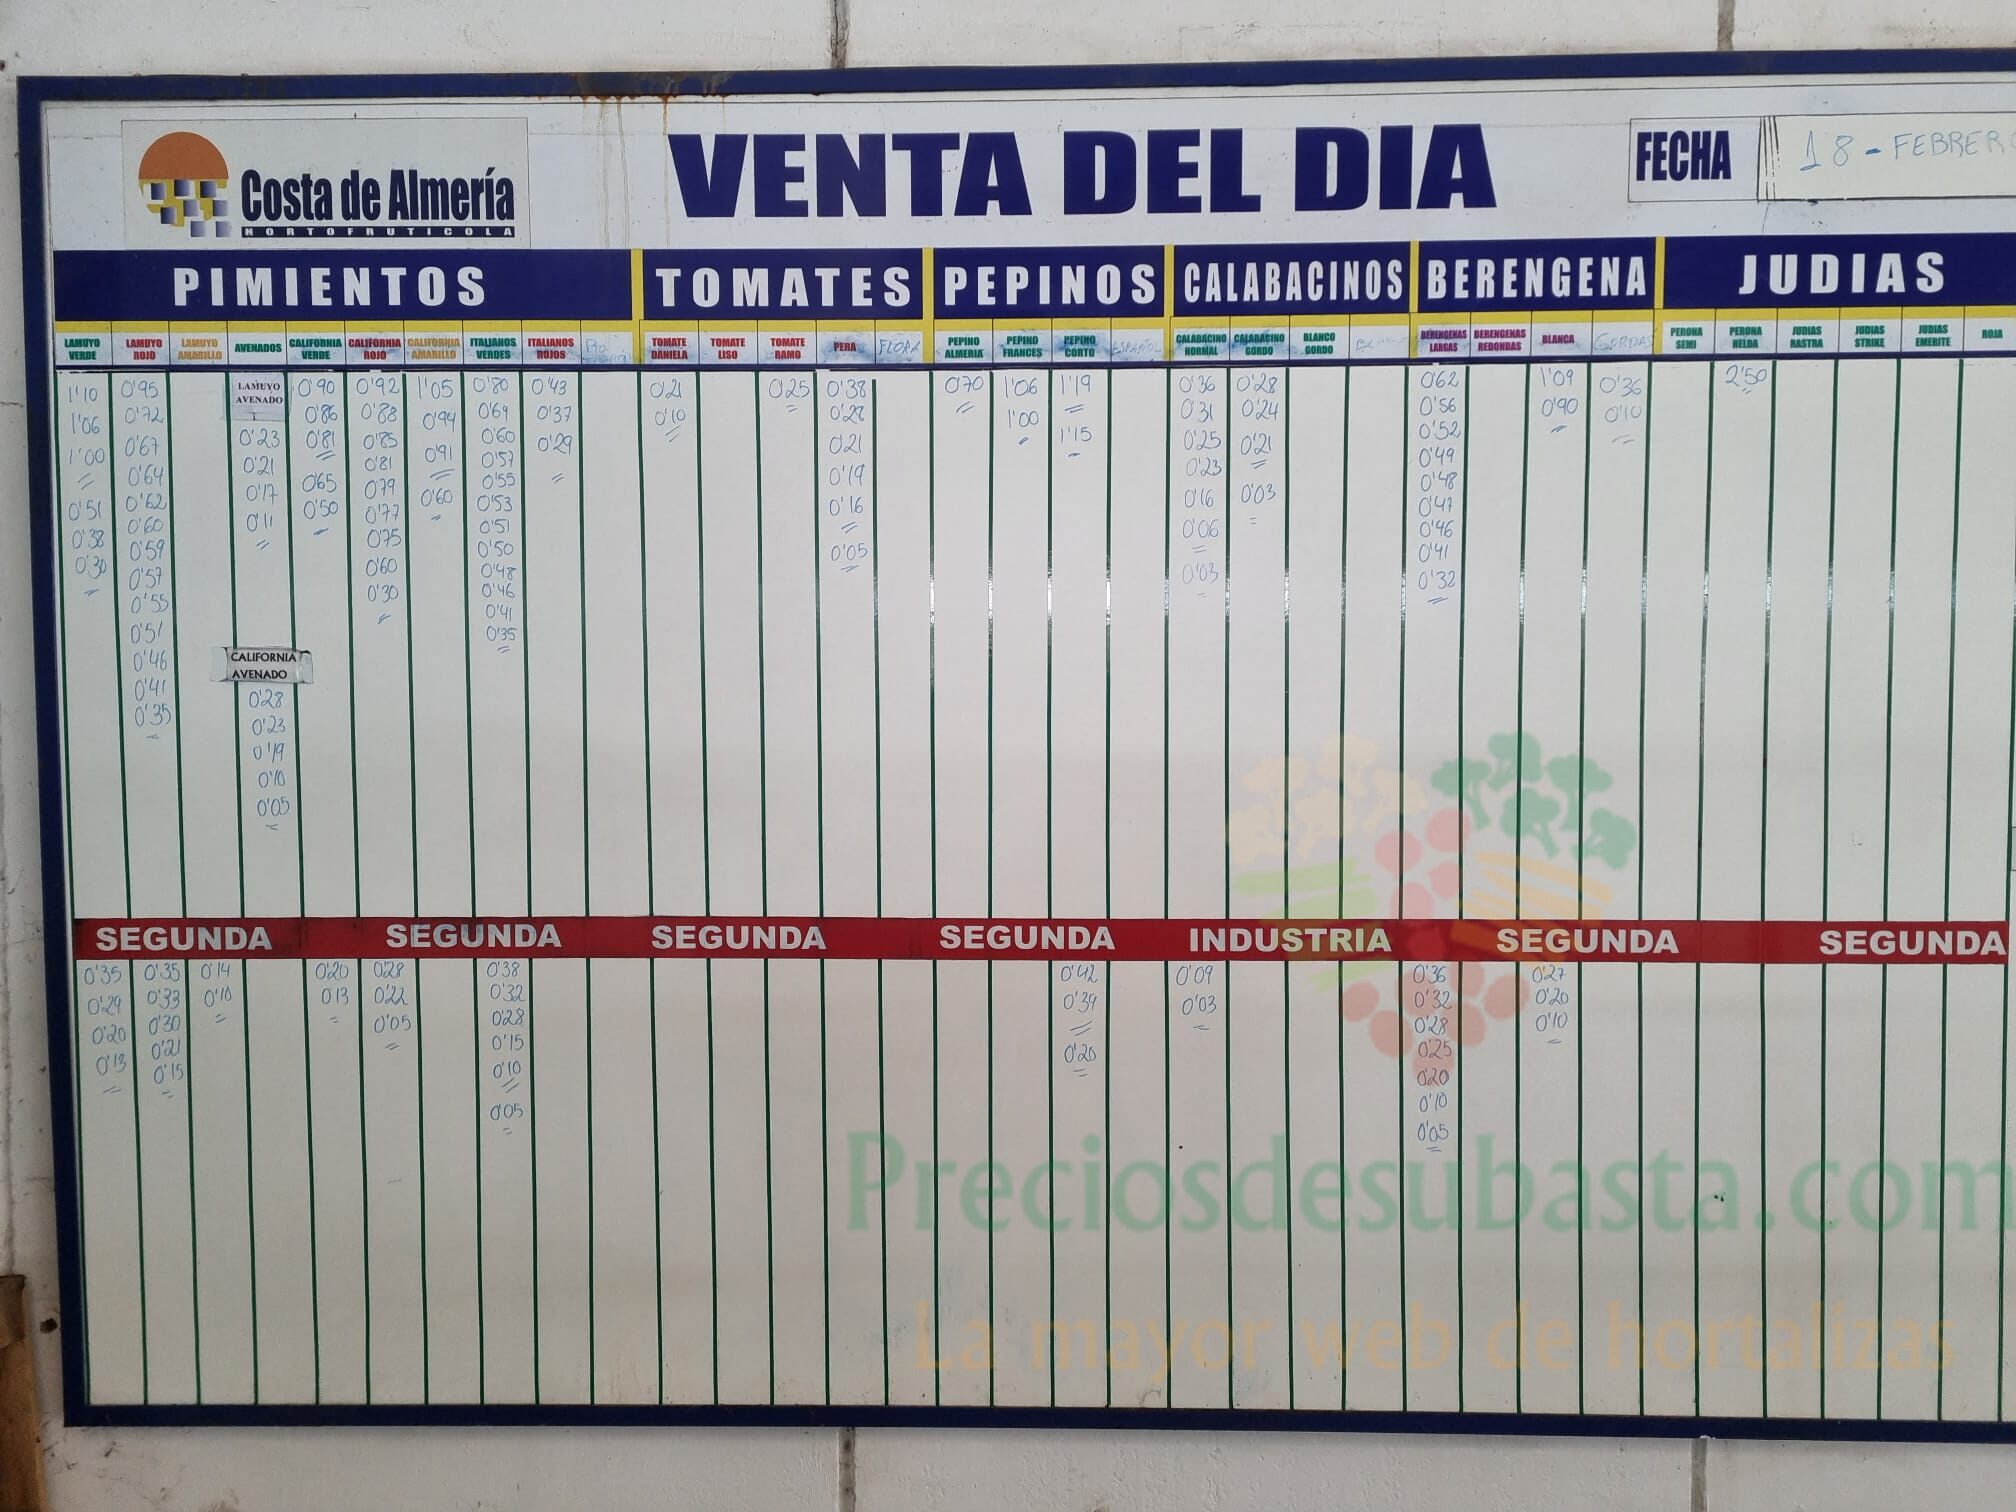 Costa de Almería
HORTOFRUTICOLA
VENTA DEL DIA
FECHA
18 - FEBRERO
PIMIENTOS
TOMATES
PEPINOS
CALABACINOS
BERENGENA
JUDIAS
LAMUYO VERDE
LAMUYO ROJO
LAMUYO AMARILLO
AVENADOS
CALIFORNIA VERDE
CALIFORNIA ROJO
CALIFORNIA AMARILLO
ITALIANOS VERDES
ITALIANOS ROJOS
TOMATE DANIELA
TOMATE LISO
TOMATE RAMO
PERA
FLORA
PEPINO ALMERIA
PEPINO FRANCES
PEPINO CORTO
ESPAÑOL
CALABACINO NORMAL
CALABACINO GORDO
BLANCO GORDO
BERENGENAS LARGAS
BERENGENAS REDONDAS
BLANCA
GORDAS
PERONA SEMI
PERONA HELDA
JUDIAS RASTRA
JUDIAS STRIKE
JUDIAS EMERITE
ROJA
1'10
1'06
1'00
0'51
0'38
0'30
0'95
0'72
0'67
0'64
0'62
0'60
0'59
0'57
0'55
0'51
0'46
0'41
0'35
LAMUYO
AVENADO
0'23
0'21
0'17
0'11
CALIFORNIA
AVENADO
0'28
0'23
0'19
0'10
0'05
0'90
0'86
0'81
0'65
0'50
0'92
0'88
0'85
0'81
0'79
0'77
0'75
0'60
0'30
1'05
0'94
0'91
0'60
0'80
0'69
0'60
0'57
0'55
0'53
0'51
0'50
0'48
0'46
0'41
0'35
0'43
0'37
0'29
0'21
0'10
0'25
0'38
0'28
0'21
0'19
0'16
0'05
0'70
1'06
1'00
1'19
1'15
0'36
0'31
0'25
0'23
0'16
0'06
0'03
0'28
0'24
0'21
0'03
0'62
0'56
0'52
0'49
0'48
0'47
0'46
0'41
0'32
1'09
0'90
0'36
0'10
2'50
SEGUNDA
SEGUNDA
SEGUNDA
SEGUNDA
INDUSTRIA
SEGUNDA
SEGUNDA
0'35
0'29
0'20
0'13
0'35
0'33
0'30
0'21
0'15
0'14
0'10
0'20
0'13
0'28
0'22
0'05
0'38
0'32
0'28
0'15
0'10
0'05
0'42
0'39
0'20
0'09
0'03
0'36
0'32
0'28
0'25
0'20
0'10
0'05
0'27
0'20
0'10
Preciosdesubasta.com
La mayor web de hortalizas